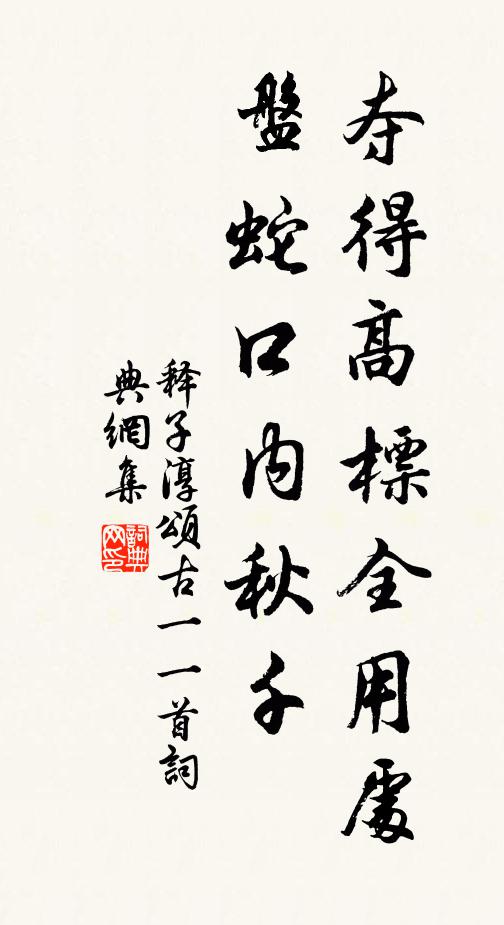 夺得高標全用處
盤蛇口内秋千
释子淳頌古一一首詞
典網集
詞典
网印